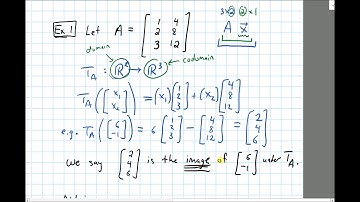 Ex 1 Let A = [1 4; 2 8; 3 12]
3×2 2×1
A x⃗
domain
T_A : ℝ² → ℝ³ codomain
T_A([x₁; x₂]) = (x₁)[1; 2; 3] + (x₂)[4; 8; 12]
e.g. T_A([6; -1]) = 6[1; 2; 3] - [4; 8; 12] = [2; 4; 6]
We say [2; 4; 6] is the image of [6; -1] under T_A.